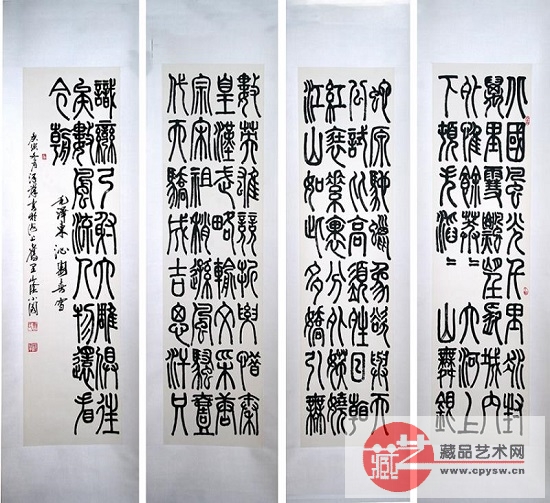 北國風光千里冰封
萬里雪飄望長城內
外惟餘莽〻大河上
下頓失滔〻山舞銀
蛇原馳蠟象欲與天
公試比高須晴日看
紅裝素裹分外妖嬈
江山如此多嬌引無
數英雄競折腰惜秦
皇漢武略輸文采唐
宗宋祖稍遜風騷壹
代天驕成吉思汗只
識彎弓射大雕俱往
矣數風流人物還看
今朝
毛澤東沁園春雪
藏艺
藏品艺术网
www.cpysw.com